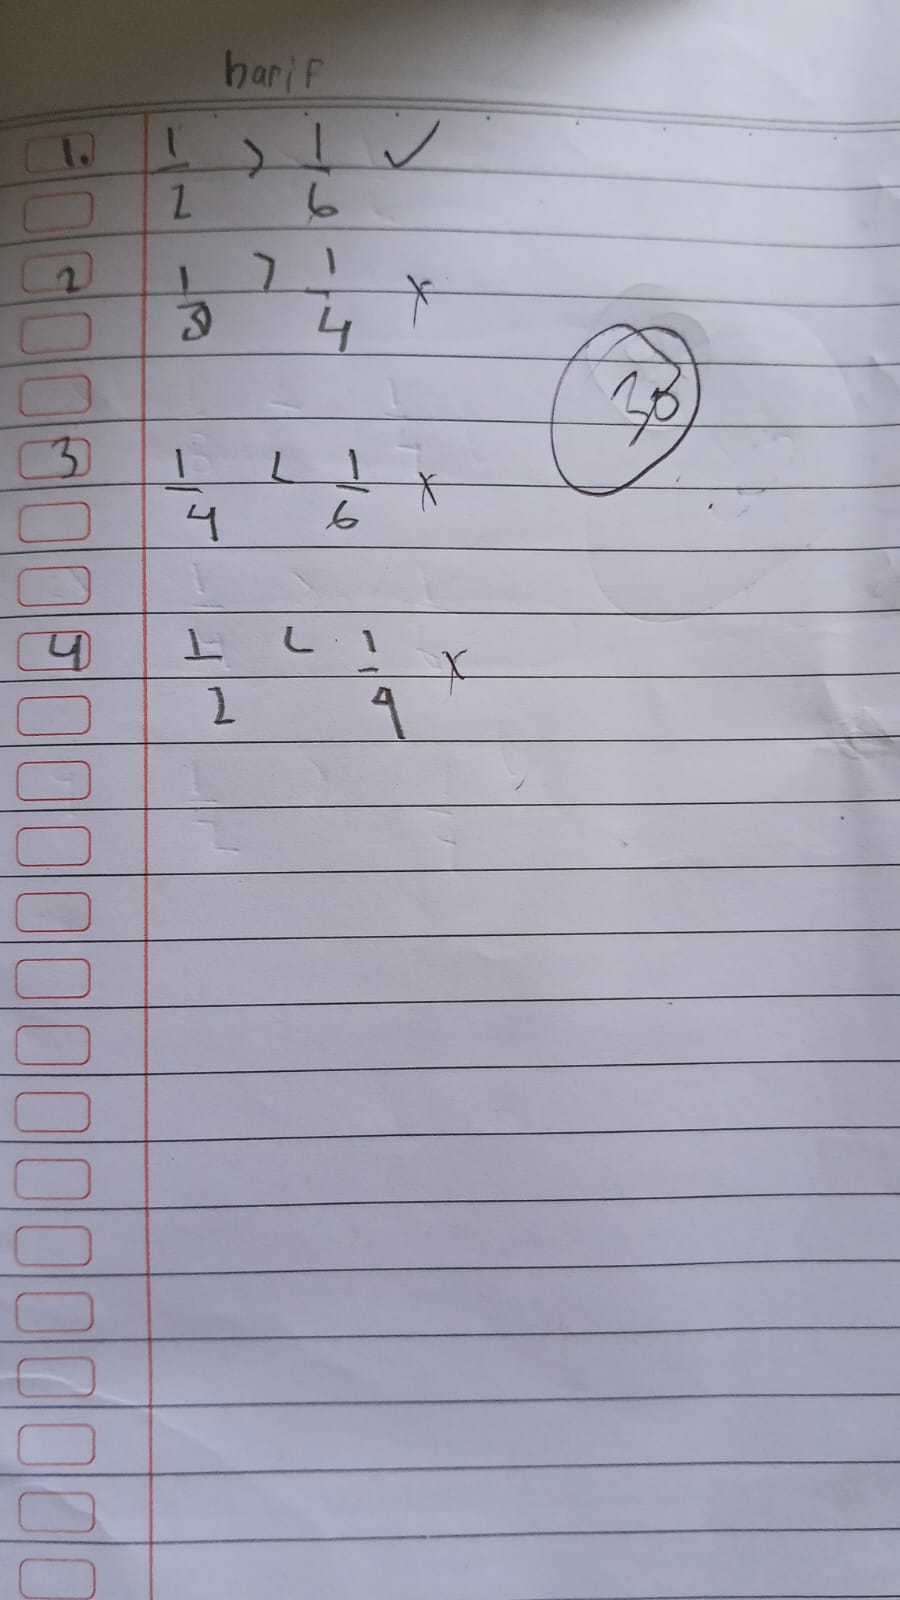 barif
1. 1/2 > 1/6 ✓
2 1/3 > 1/4 x
30
3 1/4 < 1/6 x
4 1/2 < 1/4 x